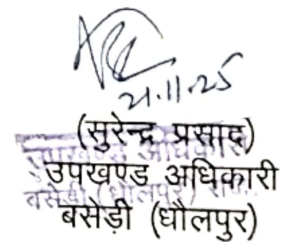 21.11.25
(सुरेन्द्र प्रसाद)
उपखण्ड अधिकारी
बसेड़ी (धौलपुर)